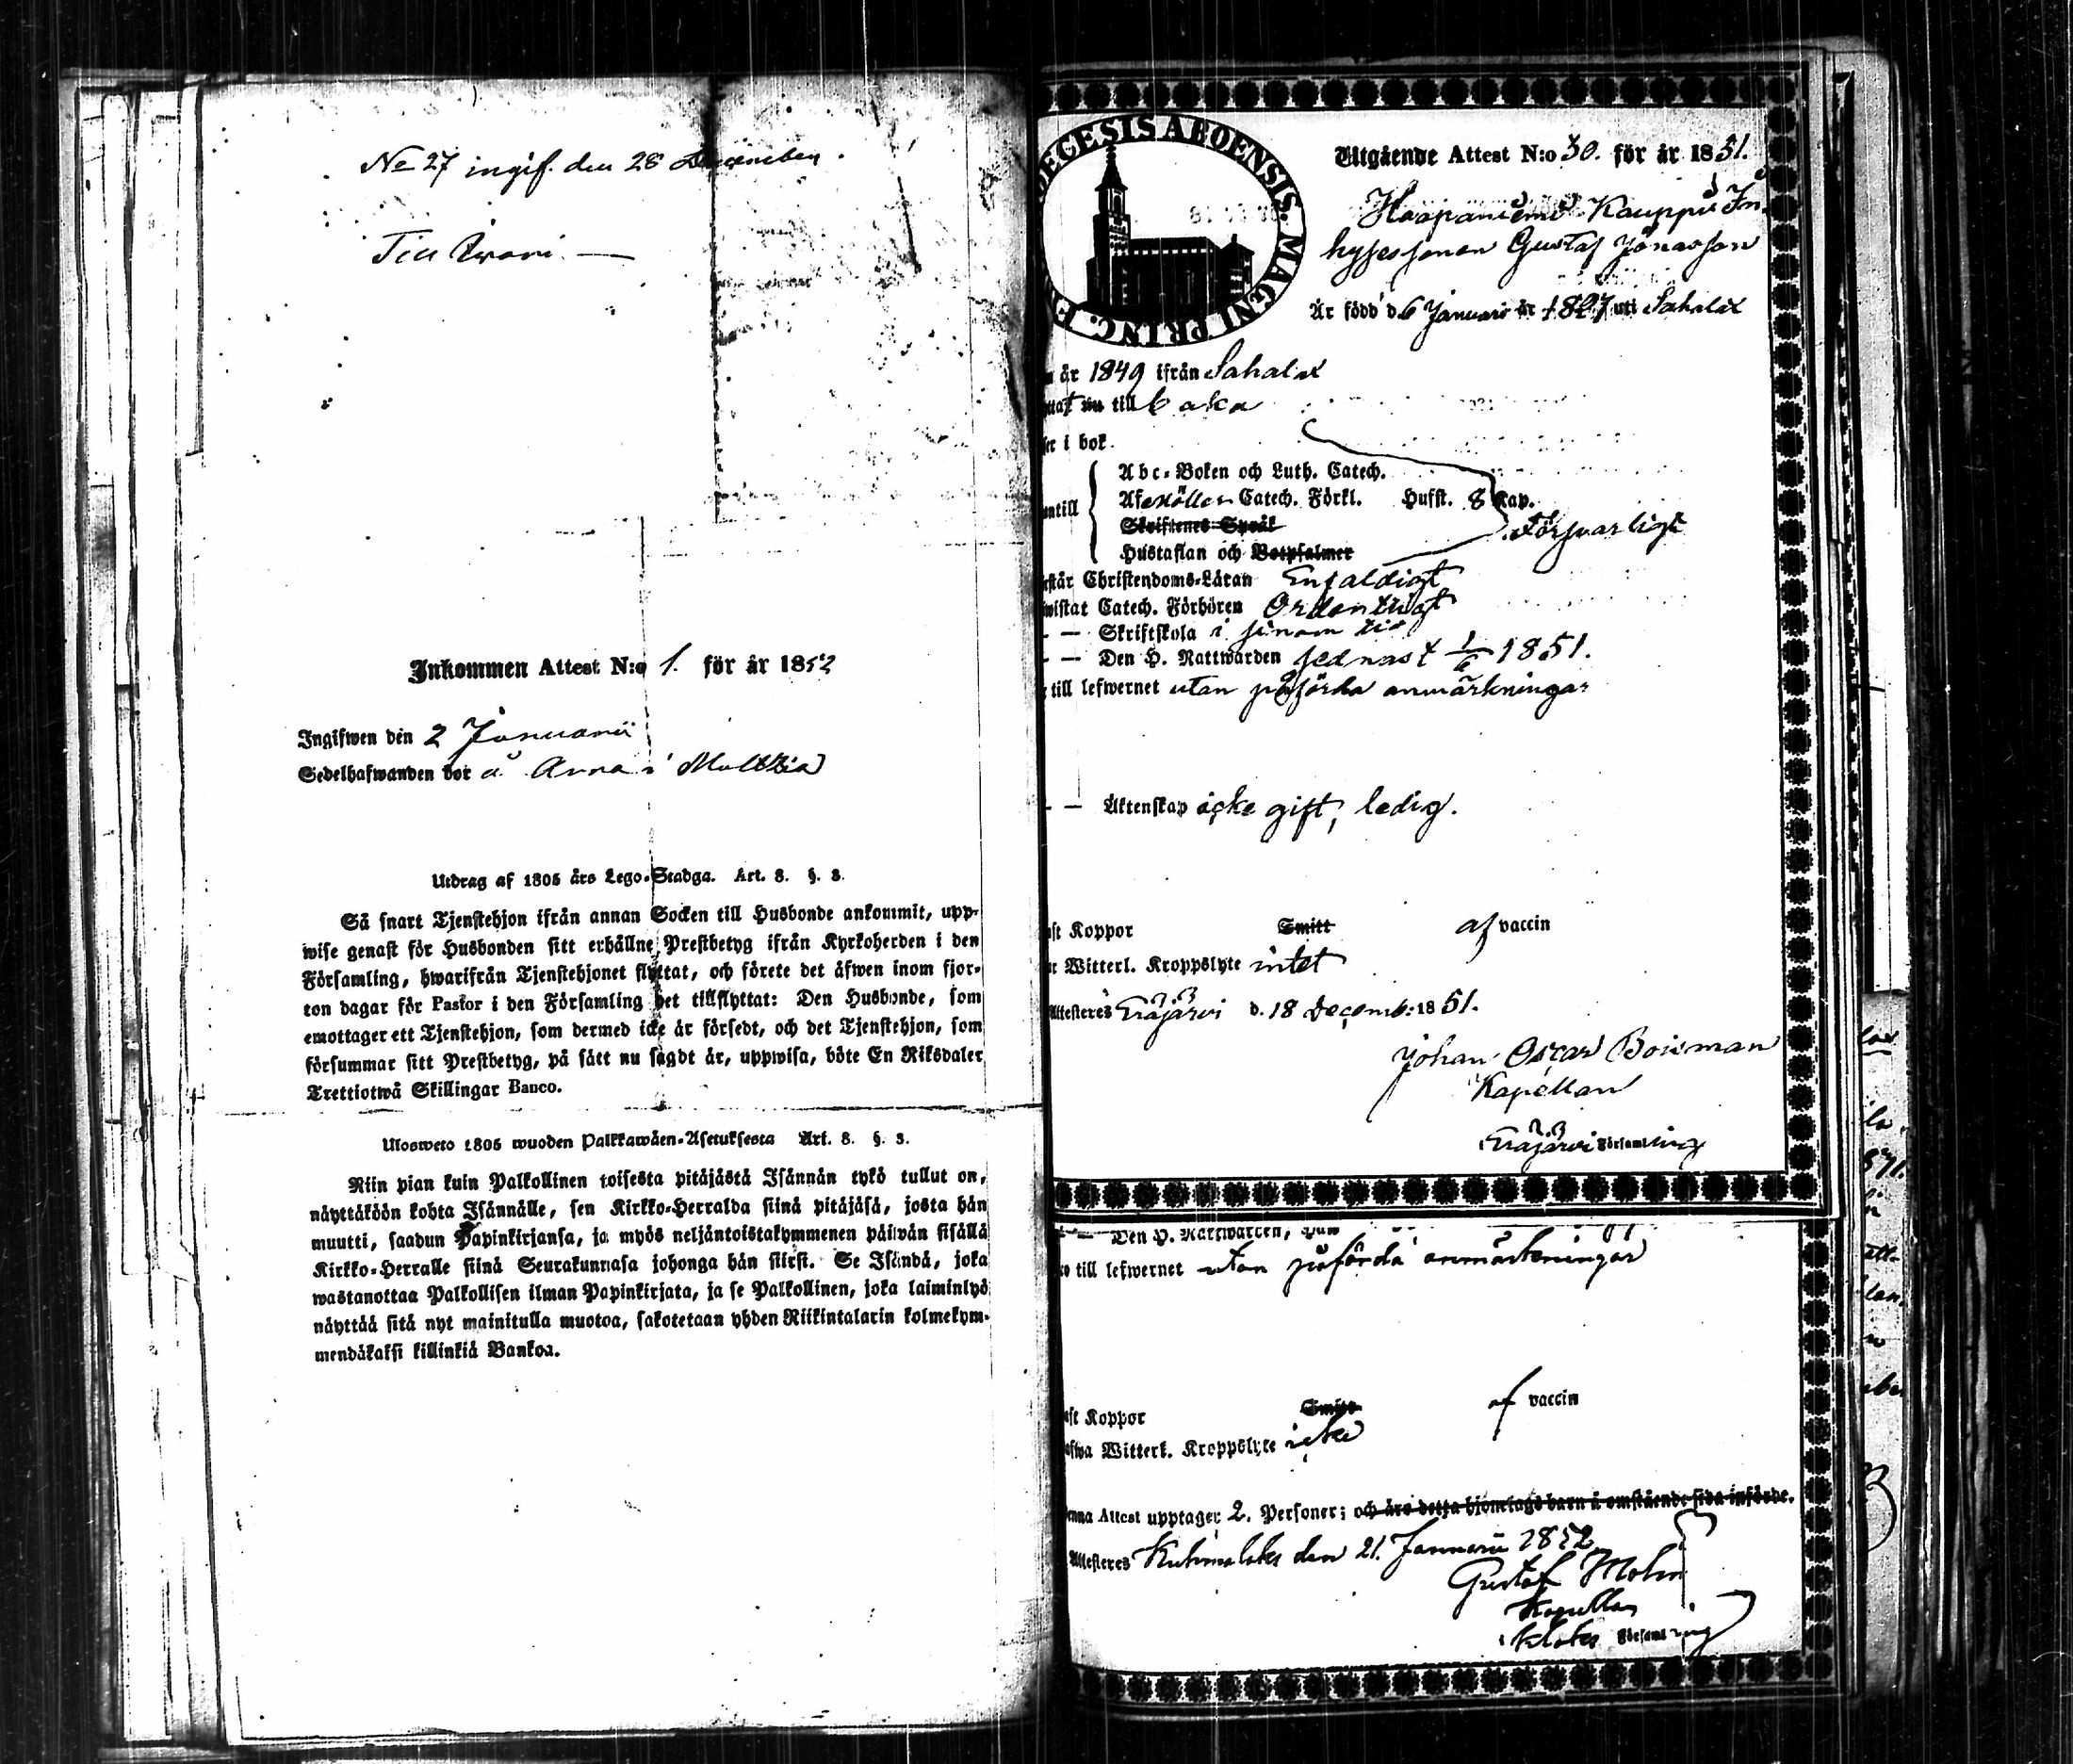 No 27 ingif. den 28 December.
Till
Inkommen Attest N:o 1. för år 1852
Ingifwen den 2 Januarii
Sedelhafwanden bor å Anna i Multtia
Utdrag af 1805 års Lego-Stadga. Art. 8. §. 3.
Så snart Tjenstehjon ifrån annan Socken till Husbonde ankommit, upp-
wise genast för Husbonden sitt erhållne Prestbetyg ifrån Kyrkoherden i den
Församling, hwarifrån Tjenstehjonet flyttat, och förete det äfwen inom fjor-
ton dagar för Pastor i den Församling det tillflyttat: Den Husbonde, som
emottager ett Tjenstehjon, som dermed icke är försedt, och det Tjenstehjon, som
försummar sitt Prestbetyg, på sätt nu sagdt är, uppwisa, böte En Riksdaler
Trettiotwå Skillingar Banco.
Ulosweto 1805 wuoden Palkkawäen-Asetuksesta Art. 8. §. 3.
Niin pian kuin Palkollinen toisesta pitäjästä Isännän tykö tullut on,
näyttäköön kohta Isännälle, sen Kirkko-Herralda siinä pitäjäsä, josta hän
muutti, saadun Papinkirjansa, ja myös neljäntoistakymmenen päiwän sisällä
Kirkko-Herralle siinä Seurakunnasa johonga hän siirst. Se Isändä, joka
wastanottaa Palkollisen ilman Papinkirjata, ja se Palkollinen, joka laiminlyö
näyttää sitä nyt mainitulla muotoa, sakotetaan yhden Riikintalarin kolmekym-
mendäkaksi killinkiä Bankoa.
ECESIS ABOENSIS. MAGNI PRINC. F
Utgående Attest N:o 30. för år 1851.
Haapaniemi Kauppi In-
hysessonen Gustaf Jonasson
Är född d. 6 Januari år 1827 uti Sahalax
år 1849 ifrån Sahalax
nu till baka
i bok
Abc-Boken och Luth. Catech.
Af Möllers Catech. Förkl. Husst. 8 Kap.
Skriftenes Språk
Försvarligt
Hustaflan och Botpsalmer
Christendoms-Läran Enfaldigt
Catech. Förhören Ordentligt
— Skriftskola i sinom tid
— Den H. Nattwarden sednast 1/6 1851.
till lefwernet utan påförda anmärkningar
— Äktenskap icke gift, ledig.
Koppor Smitt af vaccin
Witterl. Kroppslyte intet
Attesteres Eräjärvi d. 18 Decemb: 1851.
Johan Oscar Boisman
Kapellan
Eräjärvi Församling
— Den H. Nattwarden,
till lefwernet utan påförda anmärkningar
Koppor Smitt af vaccin
Witterl. Kroppslyte icke
Attest upptager 2. Personer; och äro detta hjonelags barn å omstående sida införde.
Attesteres Kuhmalaks den 21. Januarii 1852
Gustaf Molin
Kapellan
Församling